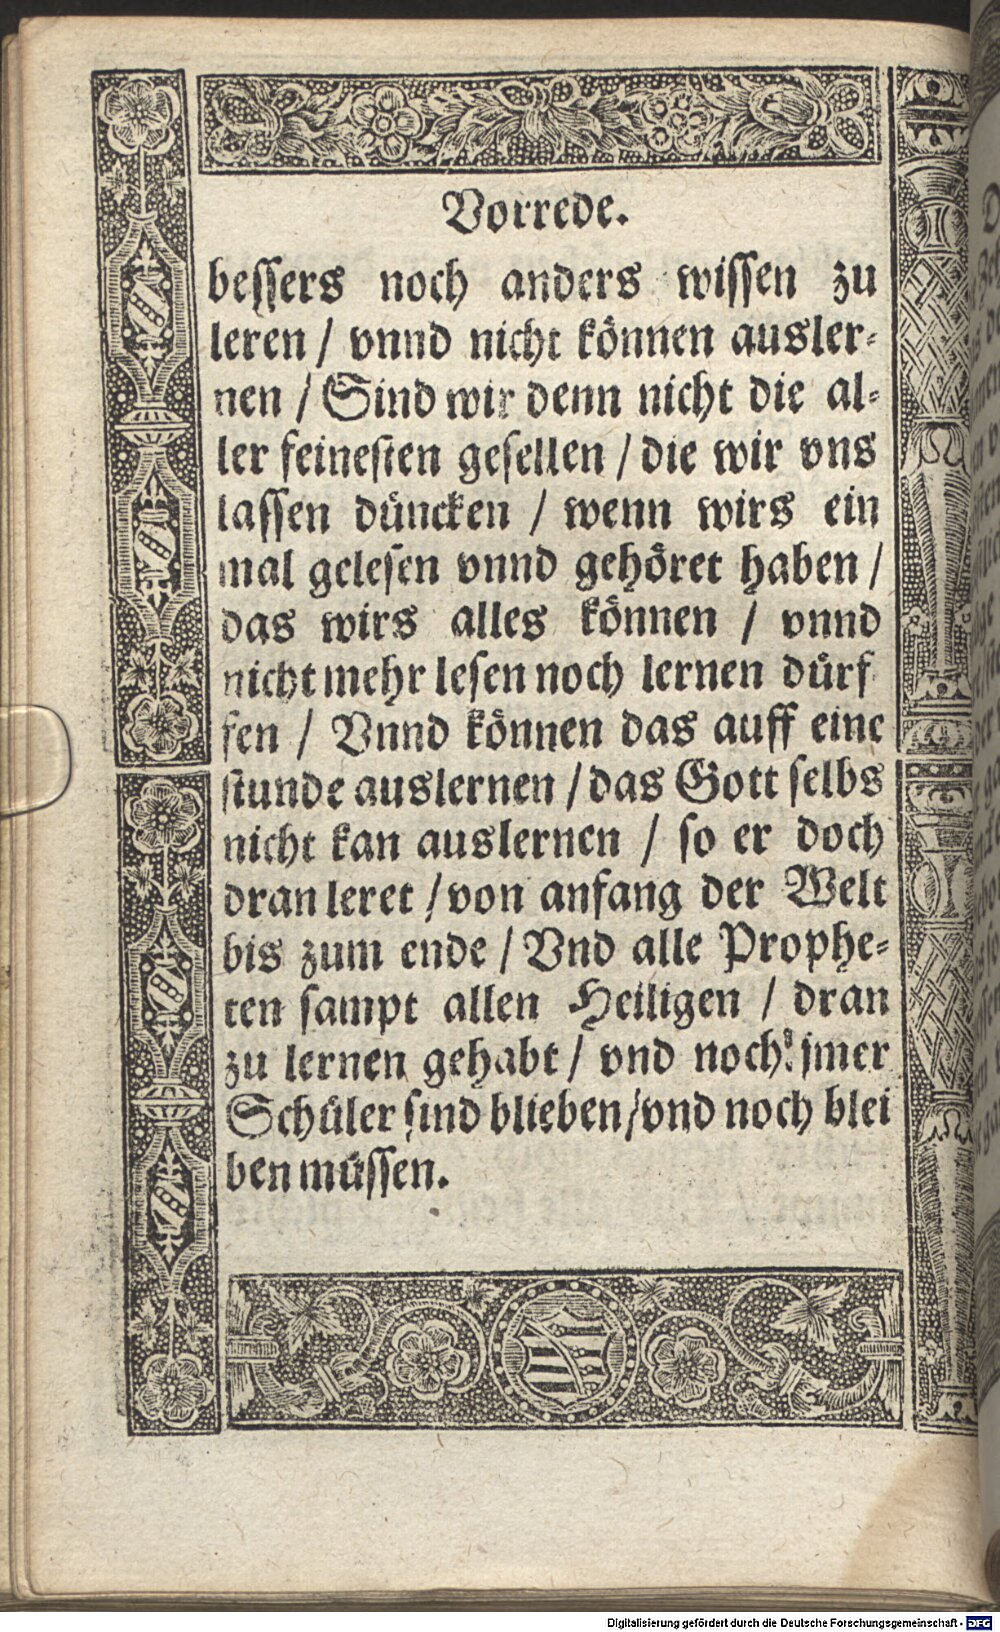 Vorrede.
bessers noch anders wissen zu
leren / vnnd nicht können ausler⸗
nen / Sind wir denn nicht die al⸗
ler feinesten gesellen / die wir vns
lassen düncken / wenn wirs ein
mal gelesen vnnd gehöret haben /
das wirs alles können / vnnd
nicht mehr lesen noch lernen dürf
fen / Vnnd können das auff eine
stunde auslernen / das Gott selbs
nicht kan auslernen / so er doch
dran leret / von anfang der Welt
bis zum ende / Vnd alle Prophe⸗
ten sampt allen Heiligen / dran
zu lernen gehabt / vnd noch jmer
Schüler sind blieben / vnd noch blei
ben müssen.
Digitalisierung gefördert durch die Deutsche Forschungsgemeinschaft - DFG